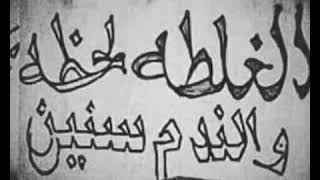 الغلطه لحظه
والندم سنين